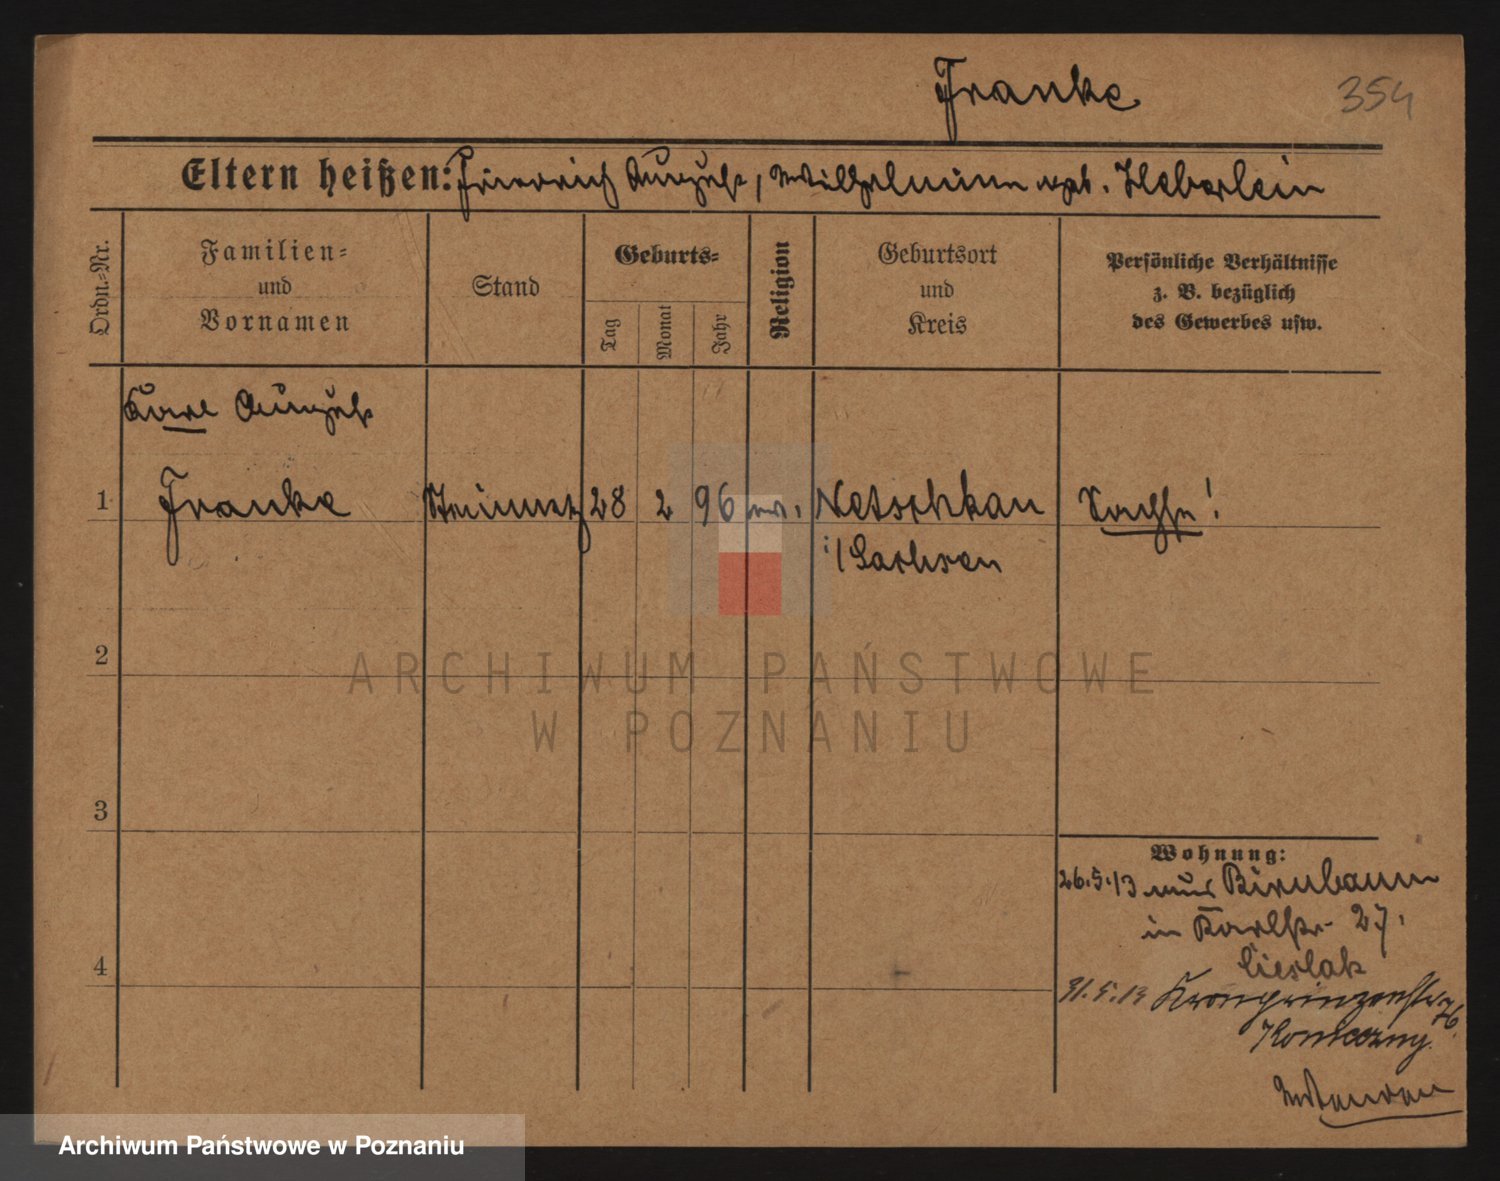 Franke
354
Eltern heißen: Friedrich August, Wilhelmine geb. Heberlein
Ordn.-Nr.
Familien-
und
Vornamen
Stand
Geburts-
Tag
Monat
Jahr
Religion
Geburtsort
und
Kreis
Persönliche Verhältnisse
z. B. bezüglich
des Gewerbes usw.
Karl August
1 Franke Steinmetz 28 2 96 ev. Netschkau Sachse!
i/Sachsen
2
ARCHIWUM PAŃSTWOWE
W POZNANIU
3
Wohnung:
26.5.13 aus Birnbaum
in Karlstr. 27.
Cieslak
4
31.5.13 Kronprinzenstr. 76.
Konieczny.
Archiwum Państwowe w Poznaniu